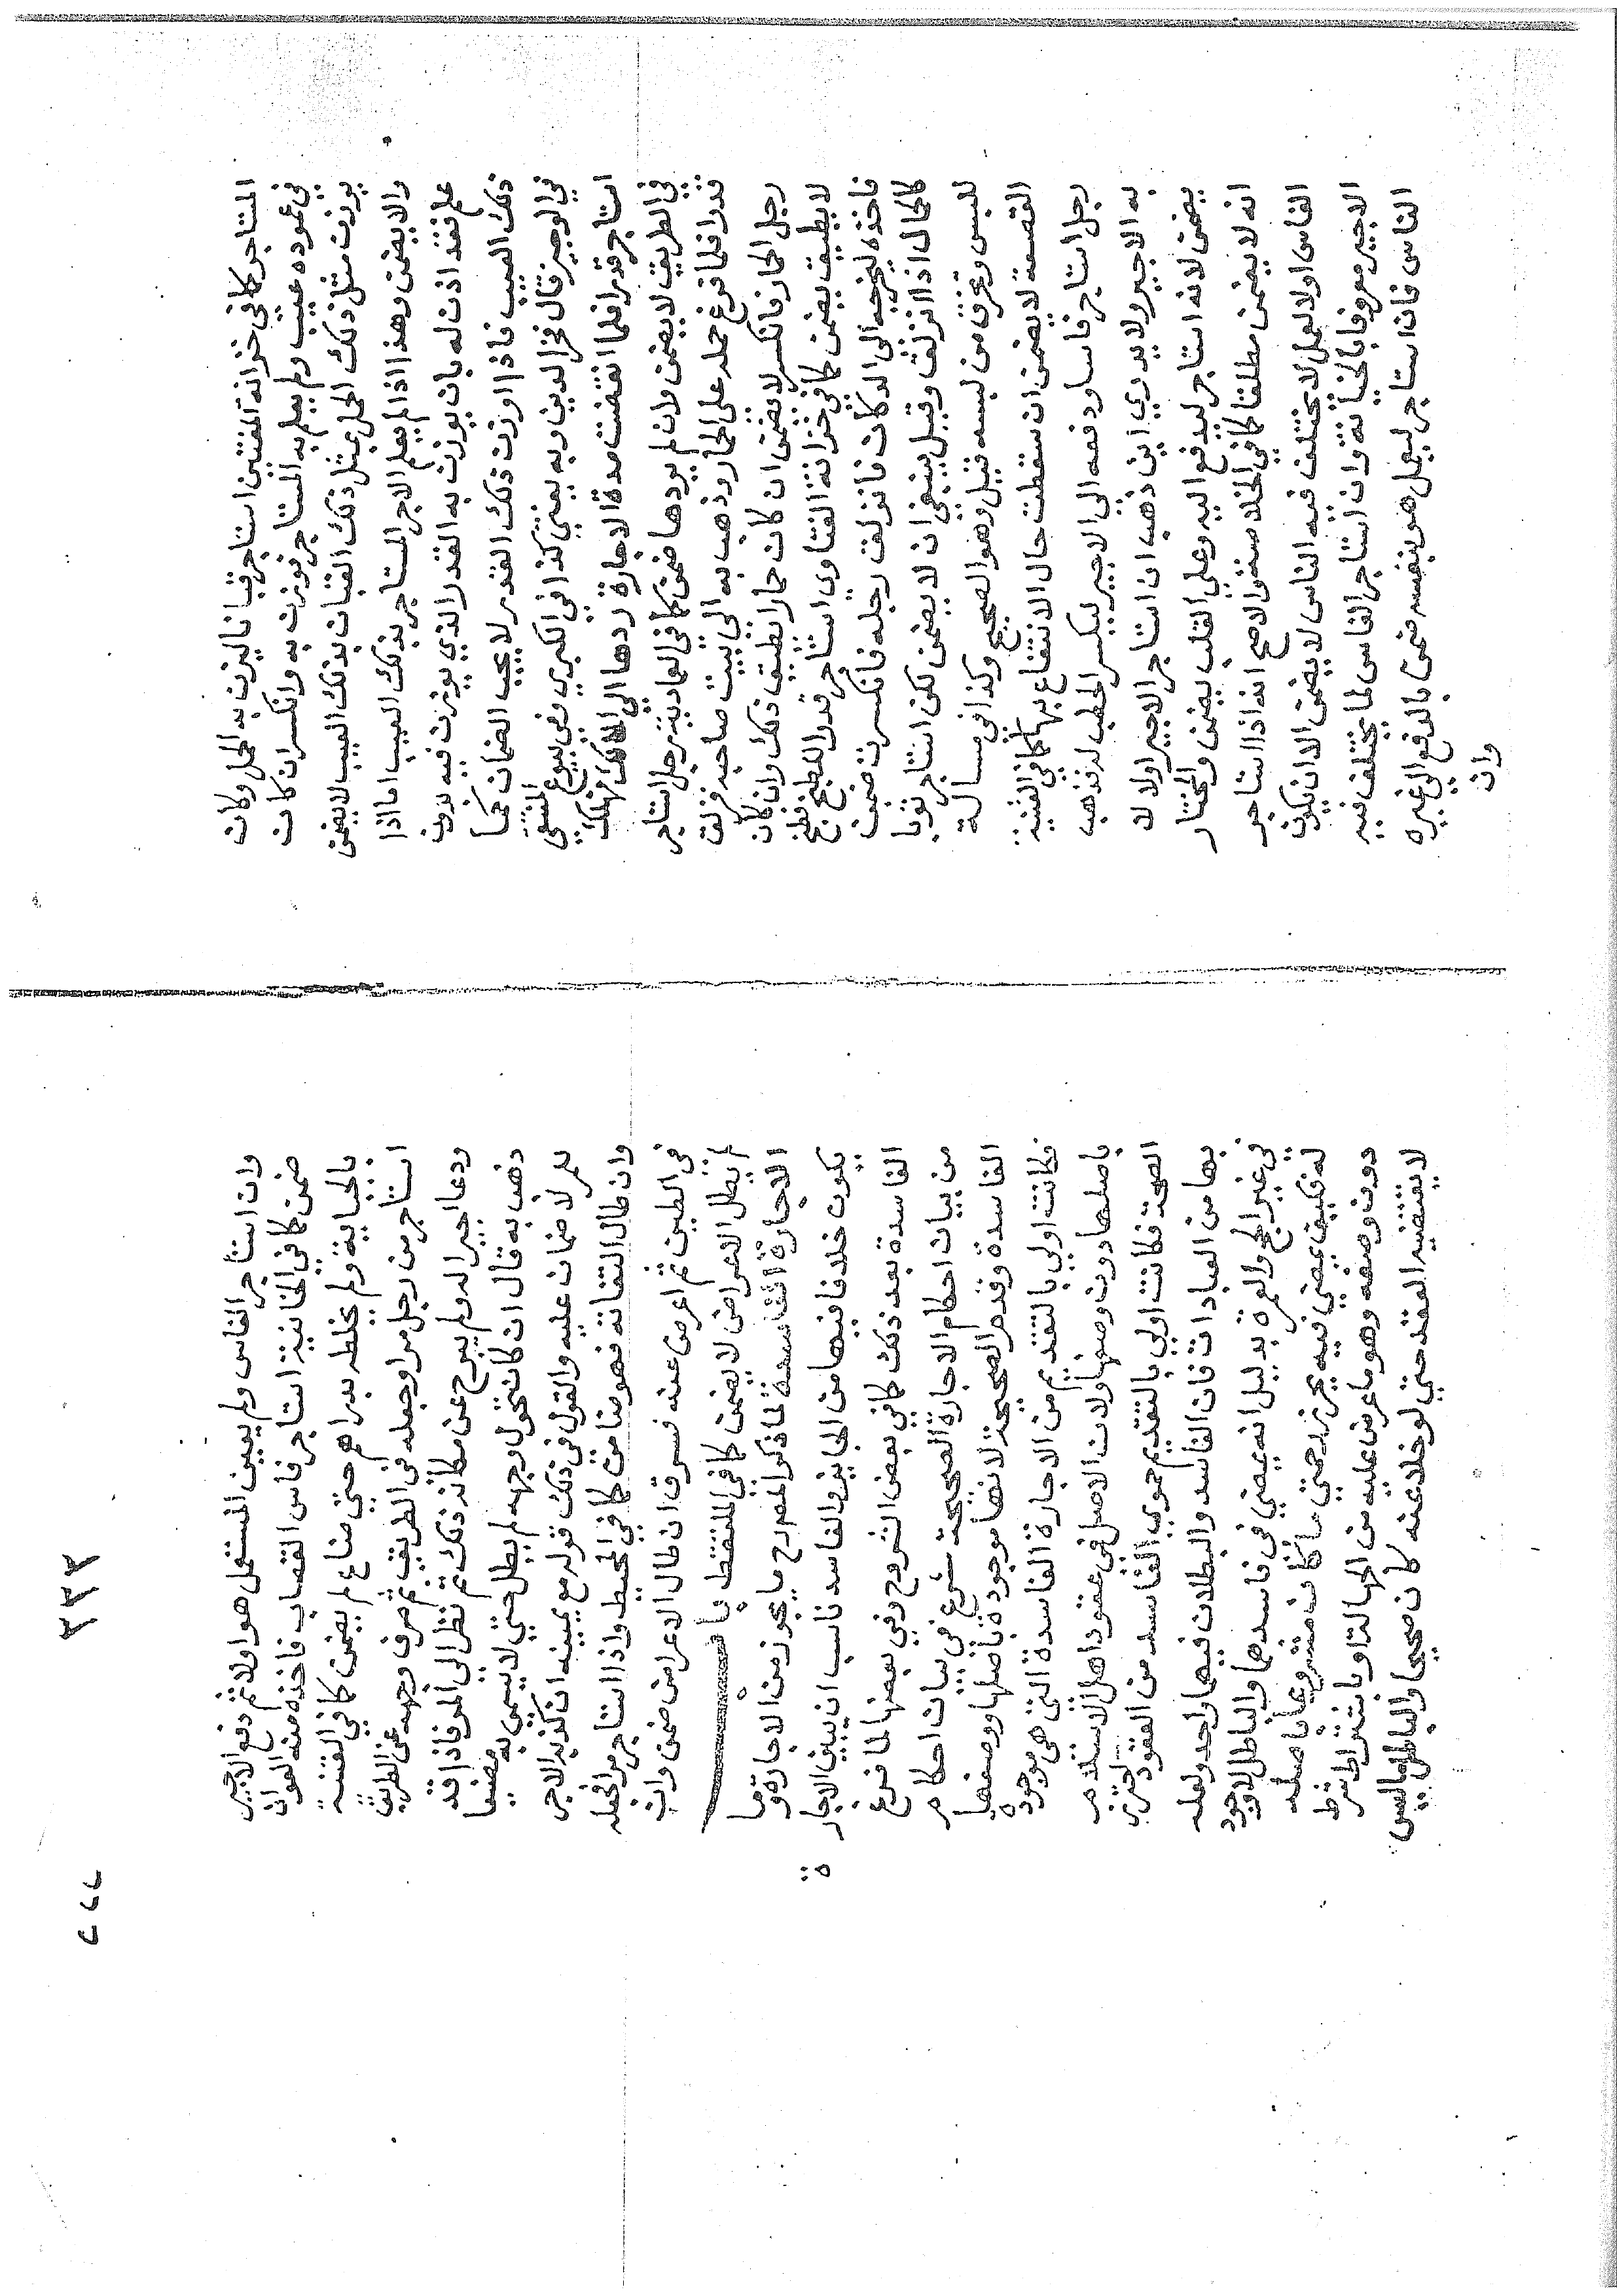 المستاجر كما في خزانة المفتين استاجر قبانا ليزن به الحمل وكان
في عموده عيب ولم يعلم به المستاجر فوزن به وانكسر ان كان
يوزن مثل ذلك الحمل بمثل ذلك القبان بذلك العيب لا يضمن
والا يضمن وهذا اذا لم يعلم الاجر المستاجر بذلك العيب اما اذا
علم فقد اذن له بان يوزن به القدر الذي يوزن فيه بدون
ذلك العيب فاذا اوزن ذلك القدر لا يجب الضمان كما
في الوجيز قال فخر الدين وبه يفتي كذا في الكبري وفي بيوع المنتقي
استاجر قدرا فلما انقضت مدة الاجارة ردها الي المالك فهلك
في الطريق لا يضمن وان لم يردها ضمن كما في العمادية رجل استاجر
قدرا فلما فرغ حمله علي الحمار وذهب به الي بيت صاحبه فزلق
رجل الحمار فانكسر لا يضمن ان كان حمارا يطيق ذلك وان كان
لا يطيق يضمن كما في خزانة الفتاوي استاجر قدرا للطبخ فطبخ
فاخذه ليخرجه الي الدكان فانزلق رجله فانكسرت ضمن
كالحمال اذا انزلق وقيل ينبغي ان لا يضمن لكن استاجر ثوبا
للبس وتخرق من لبسه قيل وهو الصحيح وكذا في مسالة
القصعة لا يضمن ان سقطت حال الانتفاع بها كما في القنية
رجل استاجر فاسا ودفعه الي الاجير ليكسر الحطب له فذهب
به الاجير ولا يدري اين ذهب ان استاجر الاجير اولا لا
يضمن لانه استاجر ليدفع اليه وعلي القلب يضمن والمختار
انه لا يضمن مطلقا كما في الخلاصة والاصح انه اذا استاجر
الفاس اولا لعمل لا يختلف فيه الناس لا يضمن الا ان يكون
الاجير معروفا بالخيانة وان استاجر الفاس لما يختلف فيه
الناس فان استاجر ليعمل هو بنفسه ضمن بالدفع الي غيره
وان
وان استاجر الفاس ولم يعين المستعمل هو اولا ثم دفع الاجير
ضمن كما في الخانية استاجر فاس القصاب فاخذه منه العوان
بالجباية ولم يخلطه بدراهم حتي ضاع لم يضمن كما في القنية
استاجر من رجل مرا وجعله في الطريق ثم صرف وجهه عن الطريق
ودعا اجيرا له ولم يبرح عن مكانه ذلك ثم نظر الي المر فاذا قد
ذهب به قال ان كان تحول وجهه لم يطل حتي لا يسمي به مضيعا
للمر لا ضمان عليه والقول في ذلك قوله مع يمينه ان كذبه الاجر
وان طال التفاته فهو ضامن كما في المحيط واذا استاجر مرا فجعله
في الطين ثم اعرض عنه فسرق ان طال الاعراض ضمن وان
لم يطل الاعراض لا يضمن كما في الملتقط باب
الاجارة الفاسدة لما ذكر المص رح ما يجوز من الاجارة وما
يكون خلافا فيها من الجايز والفاسد ناسب ان يبين الاجار
الفاسدة بعد ذلك كما في بعض الشروح وفي بعضها لما فرغ
من بيان احكام الاجارة الصحيحة شرع في بيان احكام
الفاسدة وقدم الصحيحة لانها موجودة باصلها ووصفها
فكانت اولي بالتقديم من الاجارة الفاسدة التي هي موجودة
باصلها دون وصفها ولان الاصل في عقود اهل الاسلام
الصحة فكانت اولي بالتقديم حموي الفاسد من العقود احترز
بها من العبادات فان الفاسد والبطلان فيها واحد ولعله
في غير الحج والعمرة بدليل انه يمضي في فاسدهما والباطل لا وجود
له فكيف يمضي فيه يحرز رحمتي ما كان مشروعا باصله
دون وصفه وهو ما عرض عليه من الجهالة او باشتراط شرط
لا يقتضيه العقد حتي لو خلا عنه كان صحيحا والباطل ما ليس
٥
٢٢٢
٢٢٢